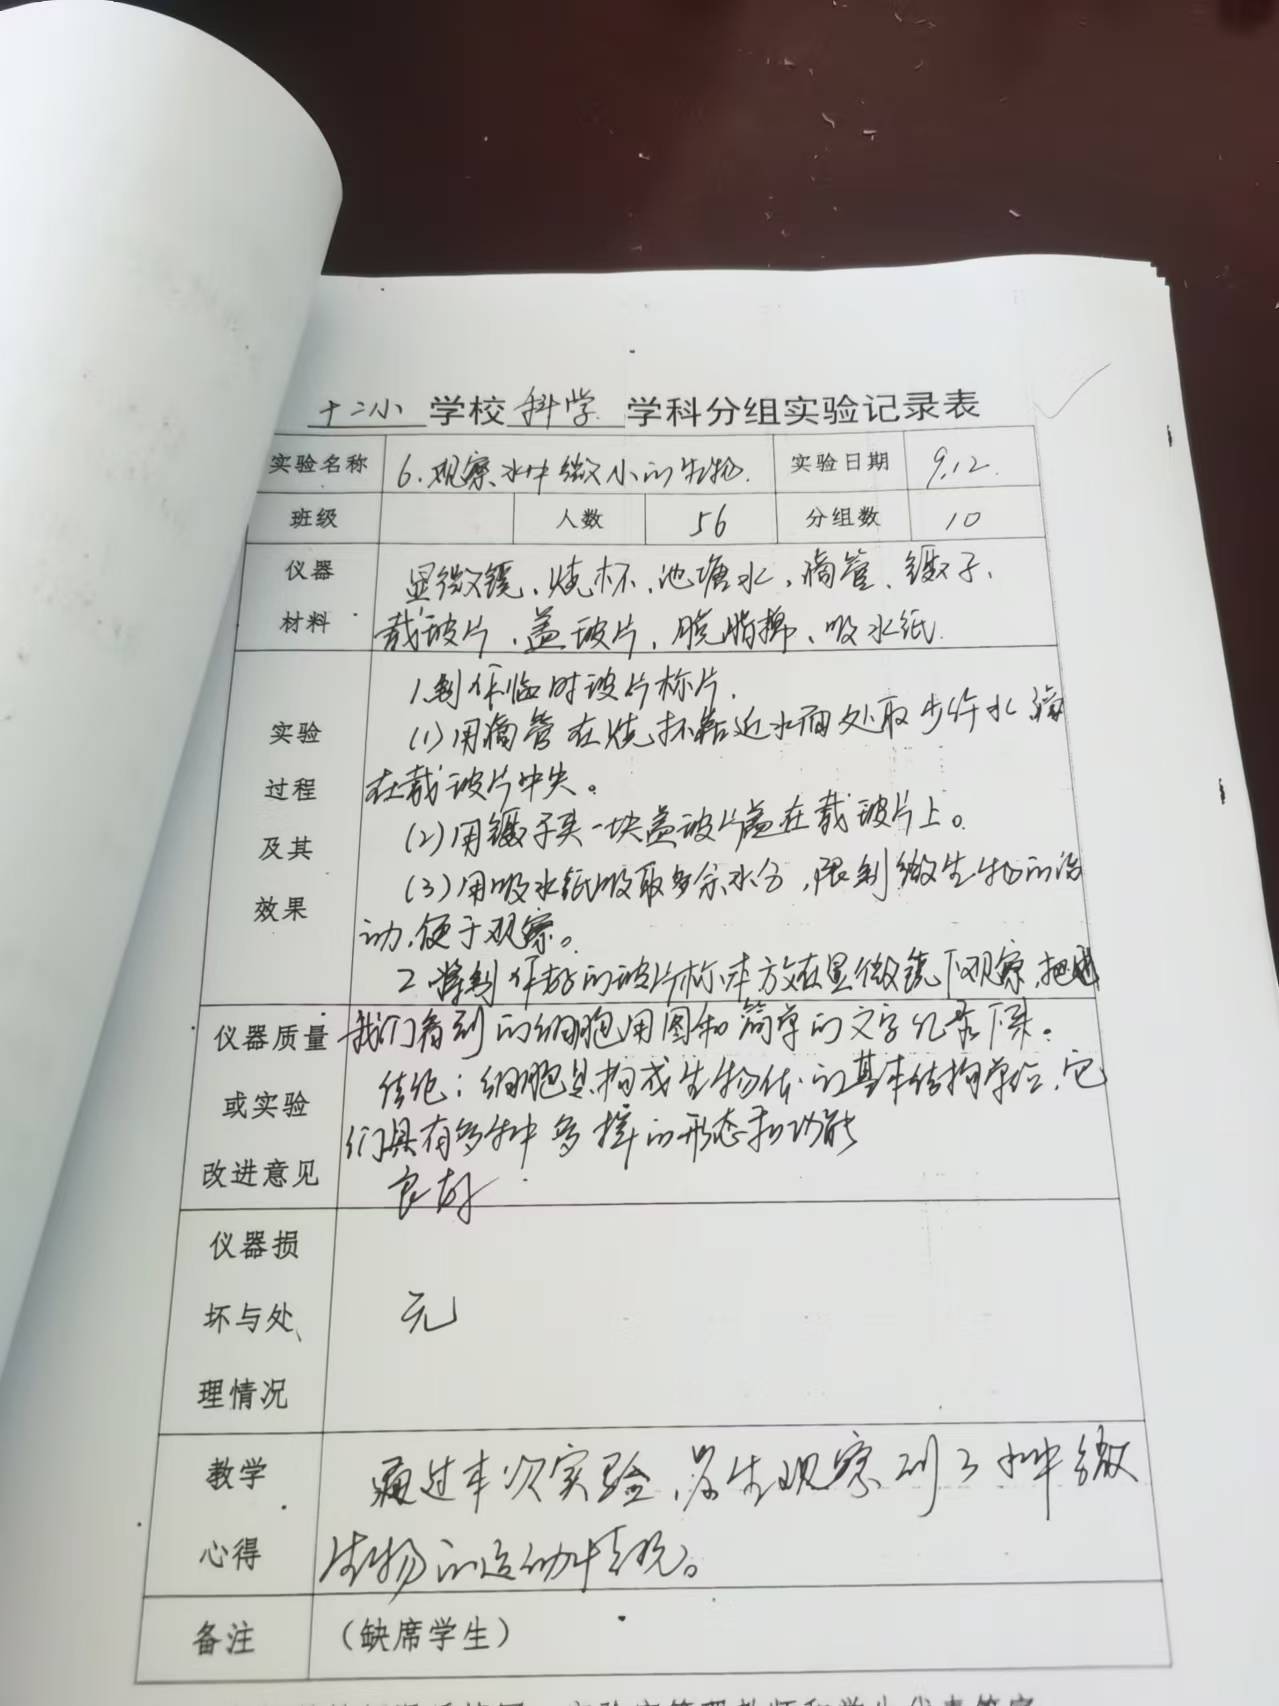 十二小 学校 科学 学科分组实验记录表
实验名称 6.观察水中微小的生物. 实验日期 9.12.
班级 人数 56 分组数 10
仪器 显微镜、烧杯、池塘水、滴管、镊子、
材料 载玻片、盖玻片、脱脂棉、吸水纸.
1.制作临时玻片标片.
实验 (1)用滴管在烧杯靠近水面处取少许水滴
过程 在载玻片中央。
(2)用镊子夹一块盖玻片盖在载玻片上。
及其 (3)用吸水纸吸取多余水分,限制微生物的活
效果 动,便于观察。
2.将制作好的玻片标本放在显微镜下观察,把
仪器质量 我们看到的细胞用图和简单的文字记录下来。
或实验 结论:细胞是构成生物体的基本结构单位,它
们具有多种多样的形态和功能
改进意见 良好
仪器损
坏与处 无
理情况
教学 通过本次实验,学生观察到了水中微
心得 生物的运动情况。
备注 (缺席学生)